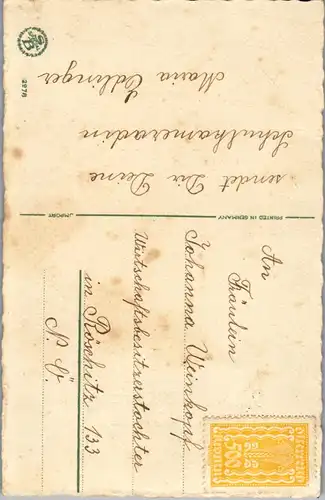 sendet Dir Deine
Schulkameradin
Maria Edlinger
2976
PRINTED IN GERMANY
IMPORT
An
Fräulein
Johanna Weinkopf
Wirtschaftsbesitzerstochter
in Röschitz 133
N. Ö.
500